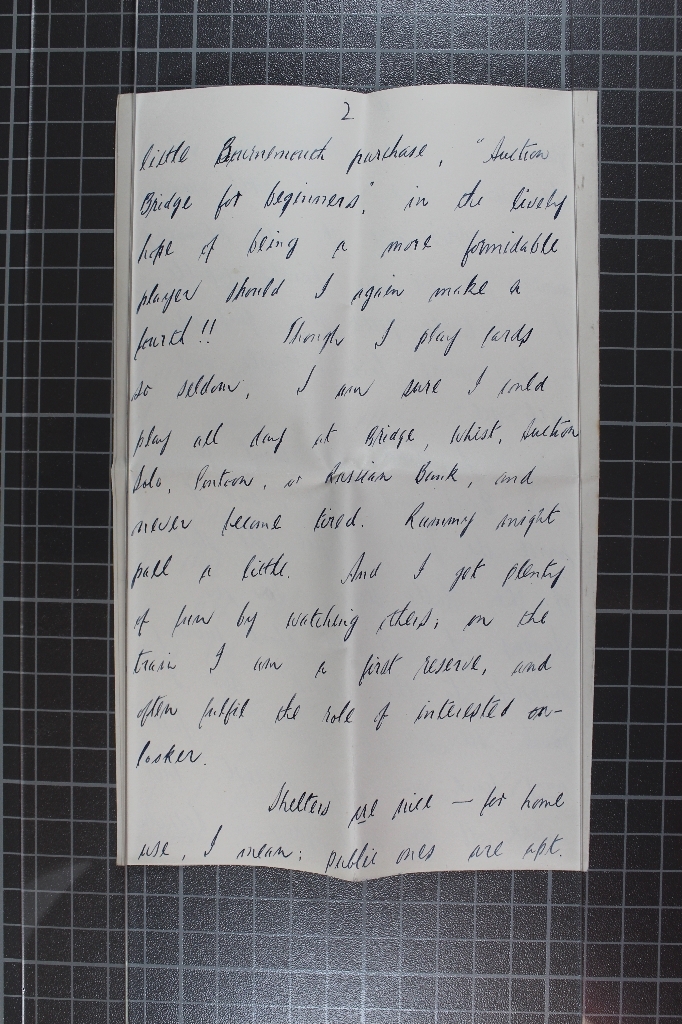 2
little Bournemouth purchase, "Auction
Bridge for beginners," in the lively
hope of being a more formidable
player should I again make a
fourth!! Though I play cards
so seldom, I am sure I could
play all day at Bridge, Whist, Auction
Solo, Pontoon, or Russian Bank, and
never become tired. Rummy might
pall a little. And I get plenty
of fun by watching others; on the
train I am a first reserve, and
often fulfil the role of interested on-
looker.
Shelters are nice — for home
use, I mean; public ones are apt.